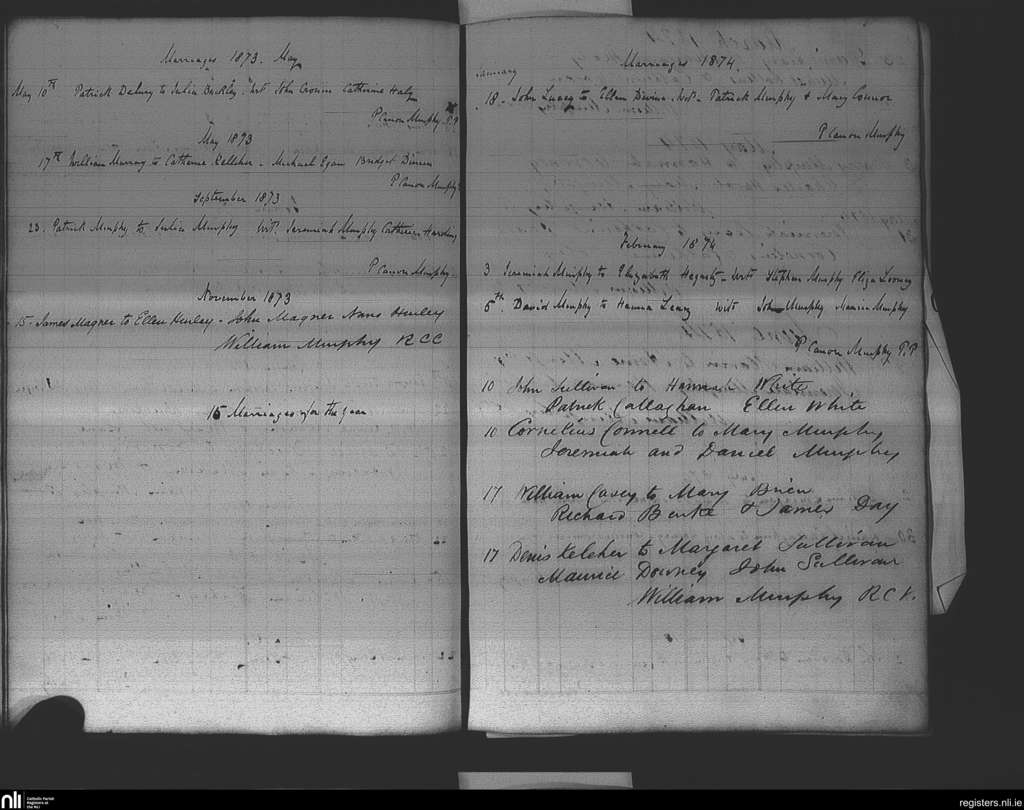 Marriages 1873. May
May 10th Patrick Delury to Julia Buckley. Wit John Cronin Catherine Haly
P Canon Murphy P.P
May 1873
17th William Murray to Catherine Kelleher - Michael Egan Bridget Dineen
P Canon Murphy
September 1873
23. Patrick Murphy to Julia Murphy Wit. Jeremiah Murphy Catherine Harding
P Canon Murphy
November 1873
15 - James Magner to Ellen Hurley - John Magner Nano Hurley
William Murphy R C C
15 Marriages for the year
Marriages 1874
January
18 - John Lucey to Ellen Divine. Wit. Patrick Murphy & Mary Connor
P Canon Murphy
February 1874
3 Jeremiah Murphy to Elizabeth Hegarty - Wit Stephen Murphy Eliza Looney
5th. David Murphy to Hanna Leary Wit John Murphy Murphy
P Canon Murphy P.P
10 John Sullivan to Hannah White
Patrick Callaghan Ellen White
10 Cornelius Connell to Mary Murphy
Jeremiah and Daniel Murphy
17 William Casey to Mary Brien
Richard Burke & James Day
17 Denis Keleher to Margaret Sullivan
Maurice Downey John Sullivan
William Murphy R C
nli Catholic Parish
Registers at
the NLI
registers.nli.ie